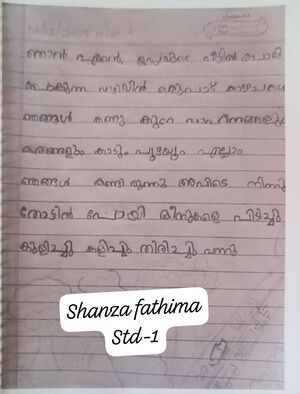 ഞാൻ എന്റെ ഉപ്പയുടെ വീട്ടിൽ പോയി
പോകുന്ന വഴിയിൽ ഒരുപാട് കാഴ്ചകൾ
ഞങ്ങൾ കണ്ടു കുറേ വാഹനങ്ങളും
മരങ്ങളും കാടും പുഴയും എല്ലാം
ഞങ്ങൾ കണ്ടിരുന്നു അവിടെ നിന്നു
തോട്ടിൽ പോയി മീനുകളെ പിടിച്ചു
കുളിച്ചു കളിച്ചു തിരിച്ചു വന്നു
Shanza fathima
Std-1